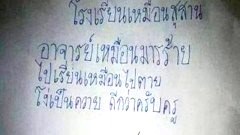 โรงเรียนเหมือนสุสาน
อาจารย์เหมือนมารร้าย
ไปเรียนเหมือนไปตาย
โง่เป็นควาย ถึกวาครับครู